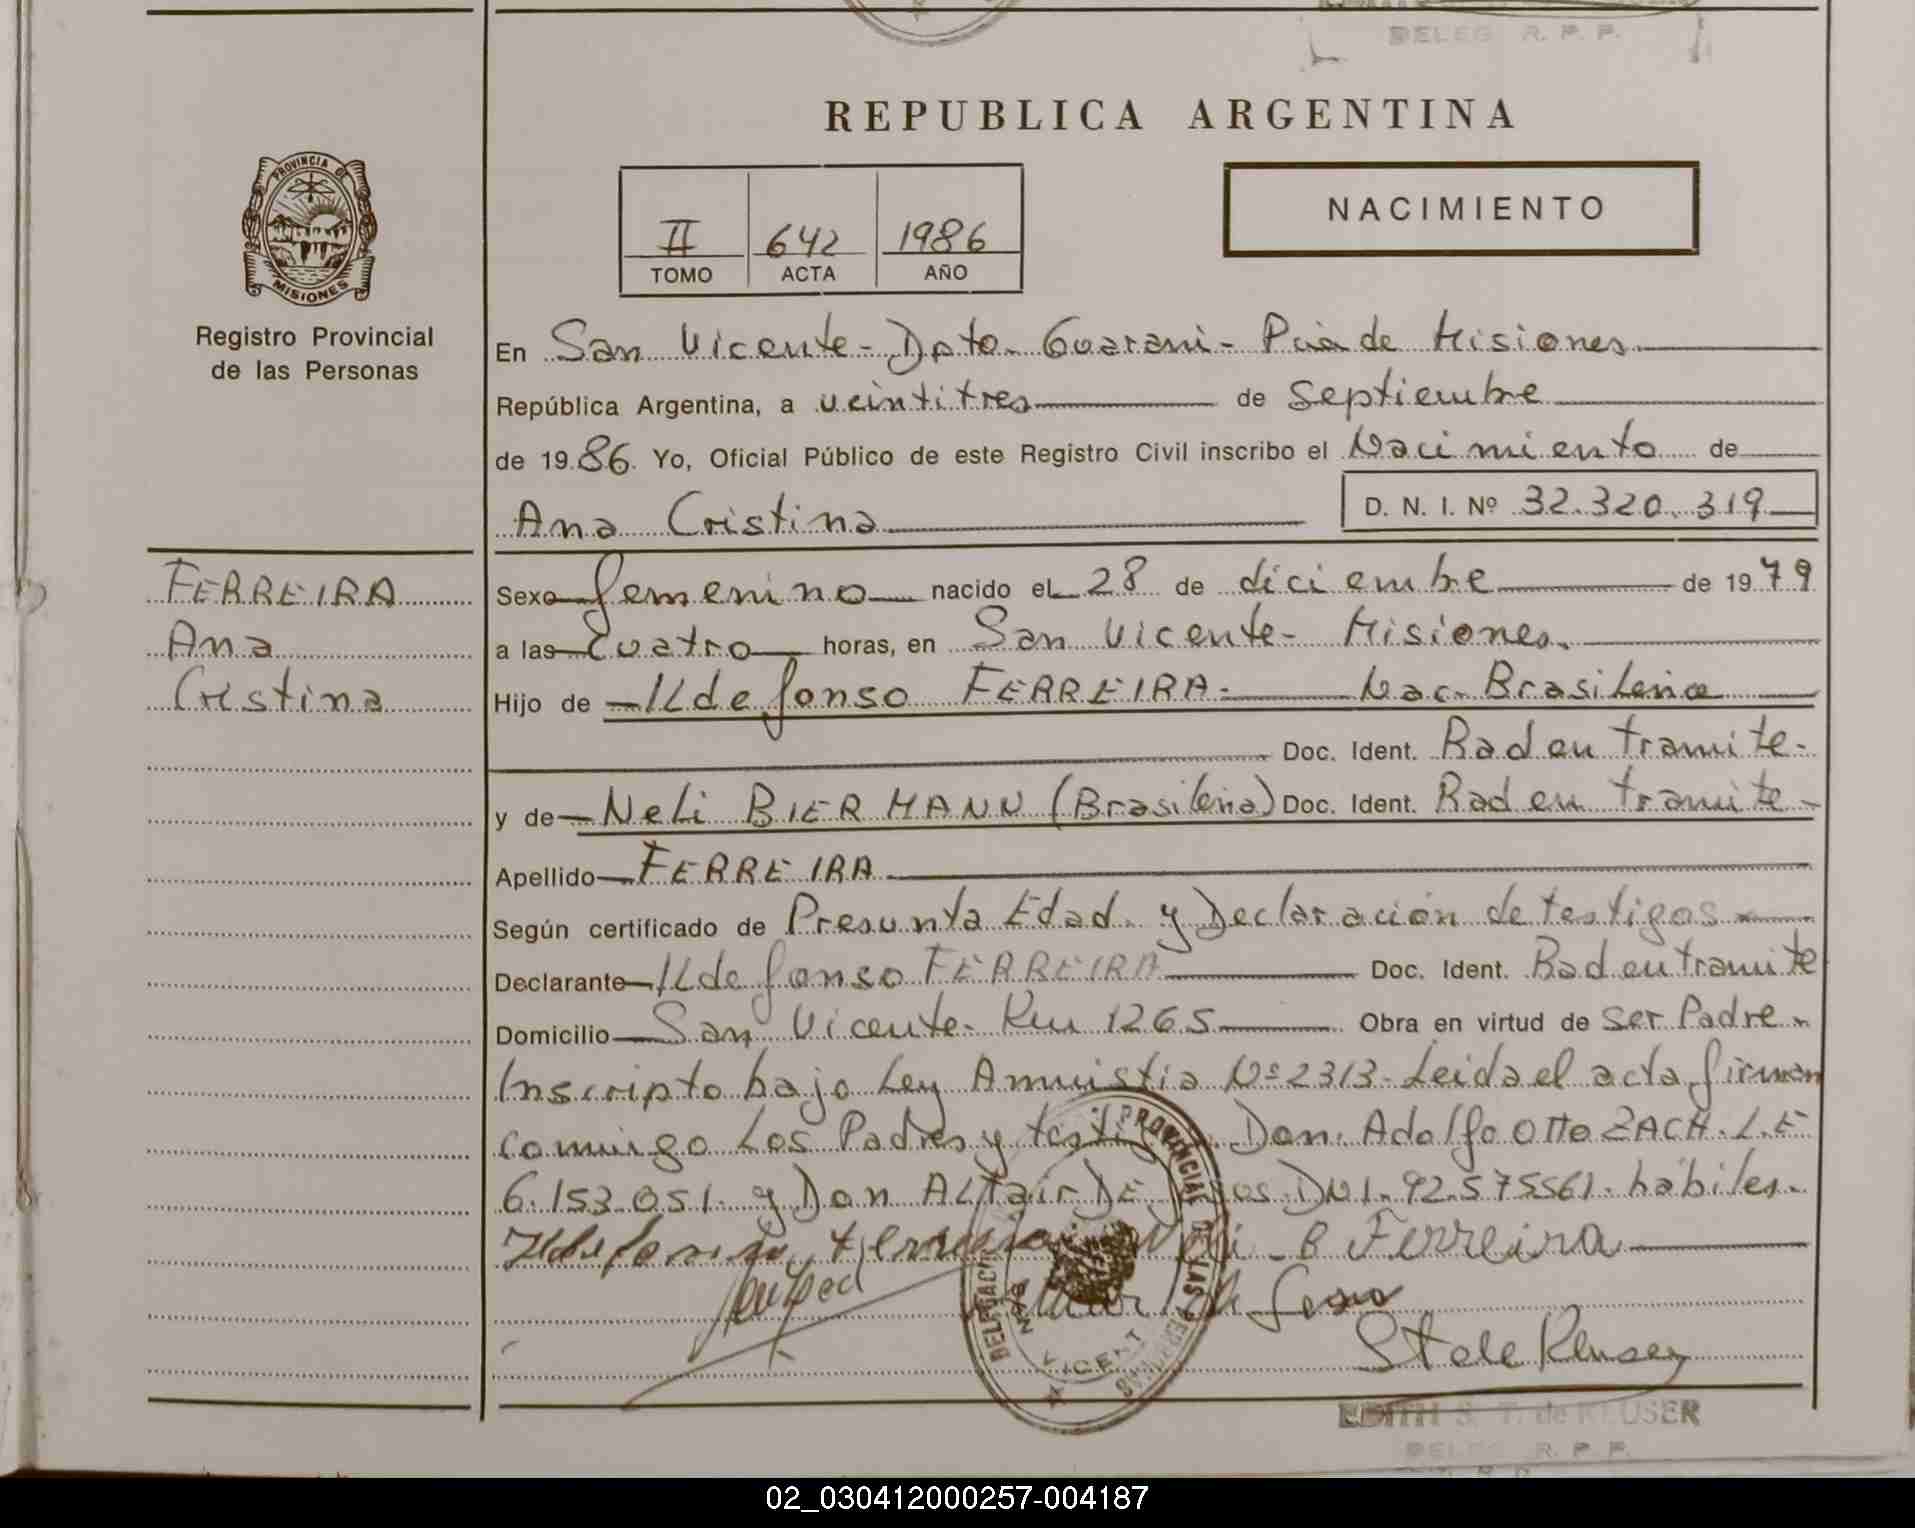 DELEG R. P. P.
REPUBLICA ARGENTINA
PROVINCIA DE
MISIONES
Registro Provincial
de las Personas
II 642 1986
TOMO ACTA AÑO
NACIMIENTO
En San Vicente - Dpto. Guarani - Pcia de Misiones
República Argentina, a veintitres de Septiembre
de 1986. Yo, Oficial Público de este Registro Civil inscribo el Nacimiento de
Ana Cristina D. N. I. Nº 32.320.319
FERREIRA
Ana
Cristina
Sexo femenino nacido el 28 de diciembre de 1979
a las cuatro horas, en San Vicente - Misiones.
Hijo de Ildefonso FERREIRA - Nac. Brasileña
Doc. Ident. Rad en tramite -
y de Neli BIERMANN (Brasileña) Doc. Ident. Rad en tramite -
Apellido FERREIRA
Según certificado de Presunta Edad y Declaración de testigos
Declarante Ildefonso FERREIRA Doc. Ident. Rad en tramite
Domicilio San Vicente - Km 1265 Obra en virtud de ser Padre
Inscripto bajo Ley Amnistia Nº 2313 - Leida el acta firman
conmigo Los Padres y Don. Adolfo Otto ZACH. L.E
6.153.051. y Don Altair DE DNI. 92.575561. habiles.
Ildefonso Ferreira Neli B Ferreira
S T de Kluser
DELEGACION PROVINCIAL DE LAS PERSONAS
SAN VICENTE
EDITH S. T. de KLUSER
DELEG. R. P. P.
02_030412000257-004187